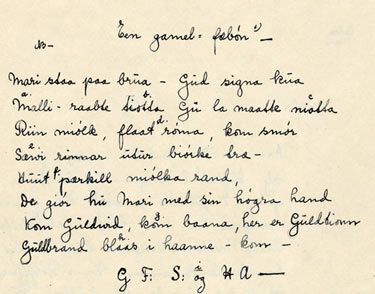 Een gamel = fæbón e) —
No –
Mari staa paa brúa – Gúd signa kúa
Malli - raabte tiótta Gú la maatk niótta
Riin miólk, flaat róma, kom smór
Sævi rinnar útúr biórke træ –
Húút pærkill miólka rand,
De giór hú Mari med sin hógra hand
Kom Gúldvid, kóm baana, her er Gúldtionn
Gúldbrand blaas i haanne – kom –
G F: S: og H A —